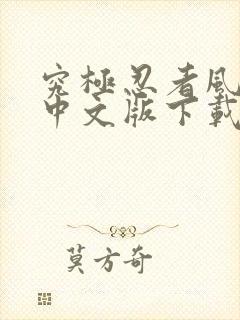 究極忍者風
中文版下載
莫方奇